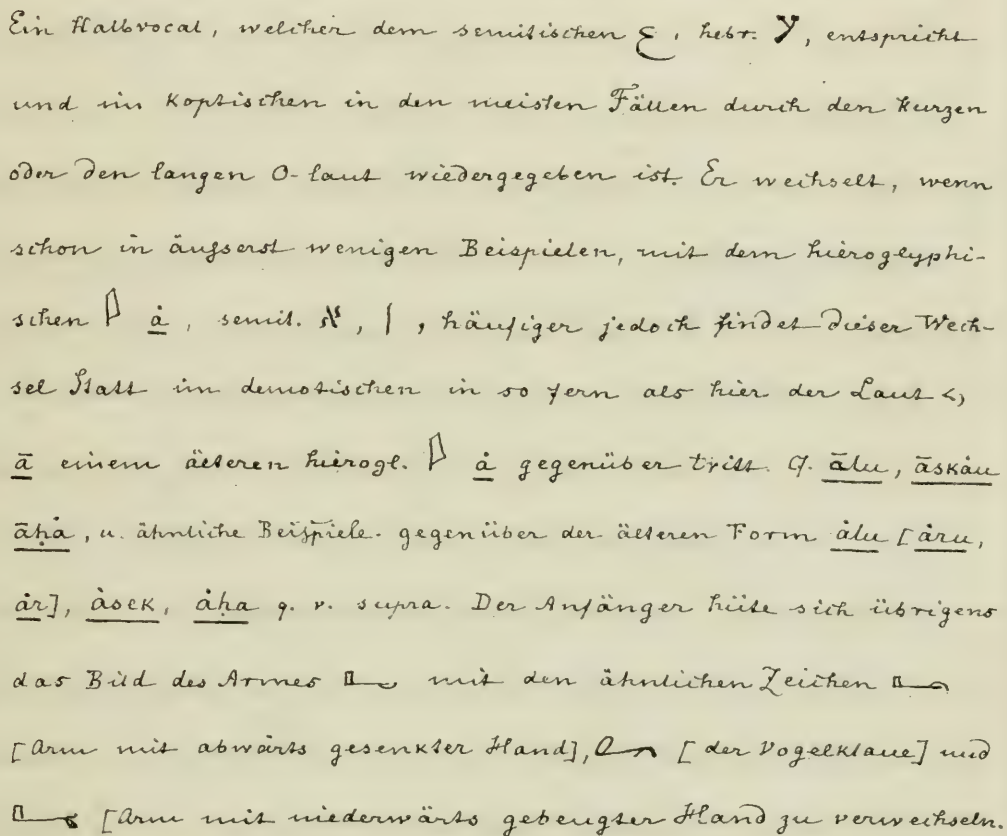 Ein Halbvocal, welcher dem semitischen ع, hebr. ע, entspricht
und im Koptischen in den meisten Fällen durch den kurzen
oder den langen O-laut wiedergegeben ist. Er wechselt, wenn
schon in äusserst wenigen Beispielen, mit dem hieroglyphi-
schen 𓇋 ȧ, semit. א, ا, häufiger jedoch findet dieser Wech-
sel Statt im demotischen in so fern als hier der Laut
ā einem älteren hierogl. 𓇋 ȧ gegenüber tritt. Cf. ālu, āskȧu
āḥȧ, u. ähnliche Beispiele. gegenüber der älteren Form ȧlu [ȧru,
ȧr], ȧsek, ȧḥa q. v. supra. Der Anfänger hüte sich übrigens
das Bild des Armes 𓂝 mit den ähnlichen Zeichen
[Arm mit abwärts gesenkter Hand], [der Vogelklaue] und
[Arm mit niederwärts gebeugter Hand zu verwechseln.